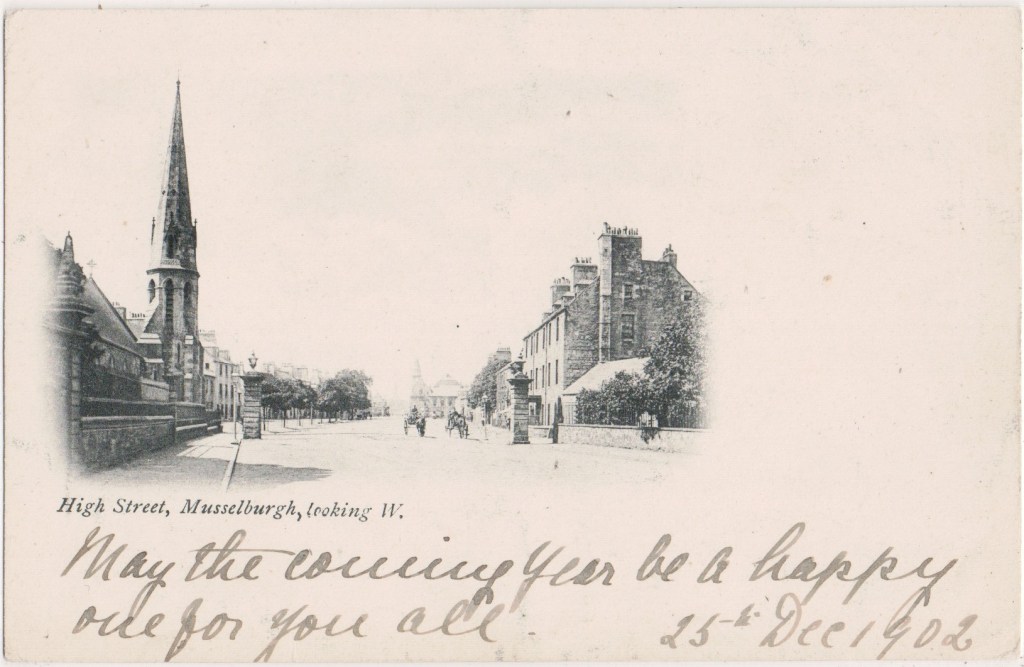 High Street, Musselburgh, looking W.
May the coming Year be a happy
one for you all
25th Dec 1902